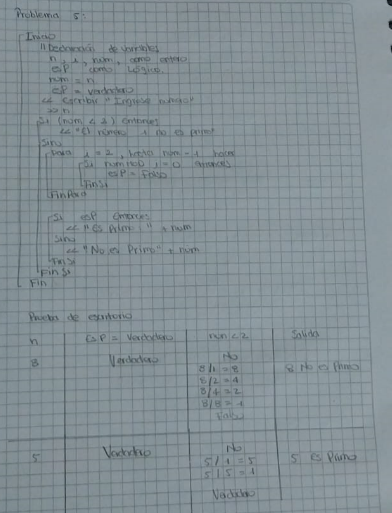 Problema 5:
Inicio
// Declaración de variables
n, i, num, como entero
esP como Lógico
num = n
esP = verdadero
<< escribir "Ingrese número"
>> n
Si (num < 2) entonces
<< "El número 1 no es primo"
Sino
para i = 2, hasta num - 1 hacer
Si num mod i = 0 entonces
esP = Falso
Fin Si
Fin Para
Si esP entonces
<< "es Primo " + num
Sino
<< "No es Primo" + num
Fin Si
Fin Si
Fin
Prueba de escritorio
n esP = Verdadero num < 2 Salida
8 Verdadero No 8 No es Primo
8/1 = 8
8/2 = 4
8/4 = 2
8/8 = 1
Falso
5 Verdadero No 5 es Primo
5/1 = 5
5/5 = 1
Verdadero